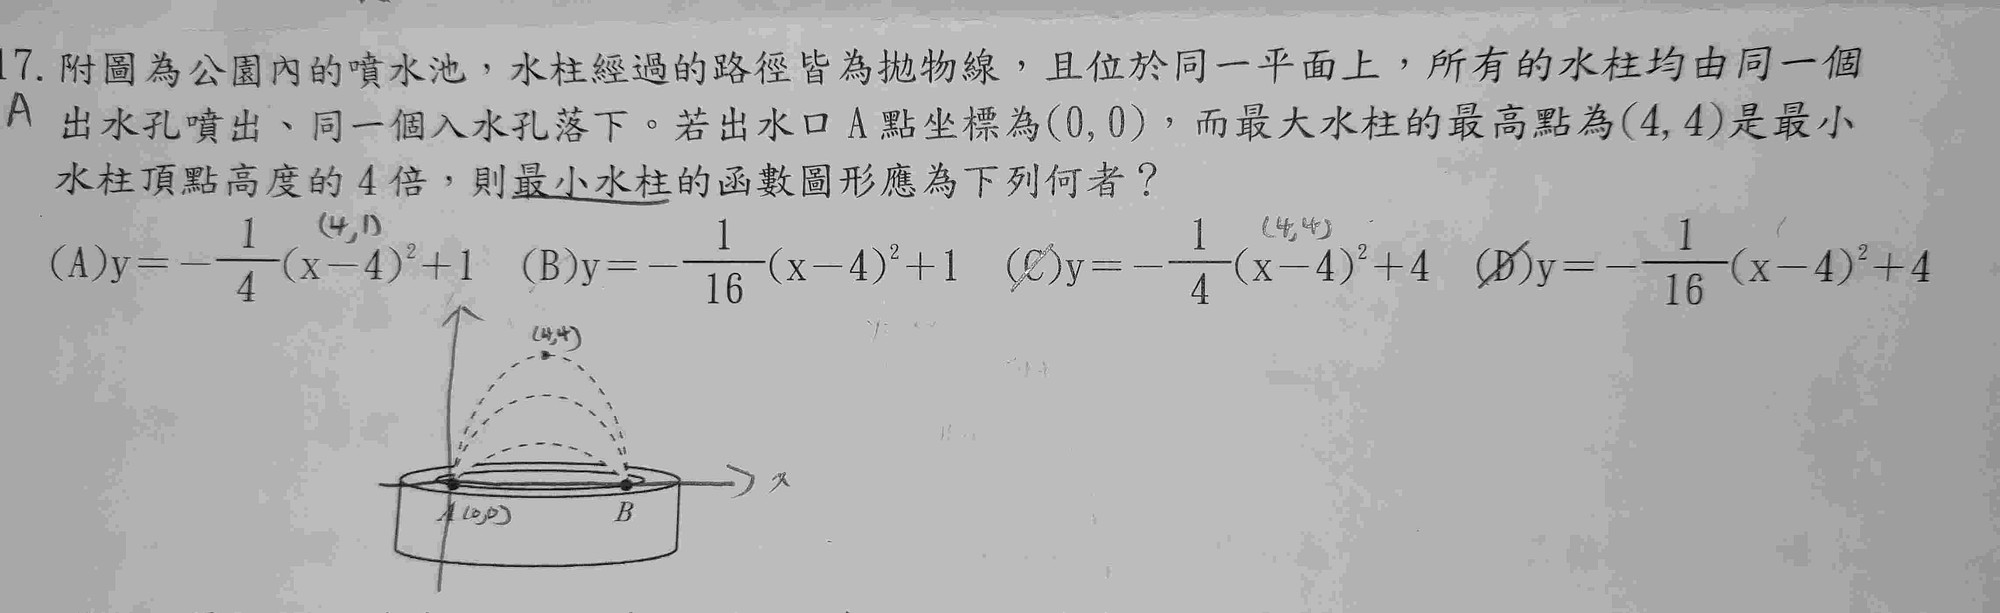 17. 附圖為公園內的噴水池，水柱經過的路徑皆為拋物線，且位於同一平面上，所有的水柱均由同一個
A 出水孔噴出、同一個入水孔落下。若出水口 A 點坐標為(0, 0)，而最大水柱的最高點為(4, 4)是最小
水柱頂點高度的 4 倍，則最小水柱的函數圖形應為下列何者？
(4,1) (4,4)
(A)y＝－1/4(x－4)²＋1 (B)y＝－1/16(x－4)²＋1 (C)y＝－1/4(x－4)²＋4 (D)y＝－1/16(x－4)²＋4
(4,4)
x
A(0,0) B